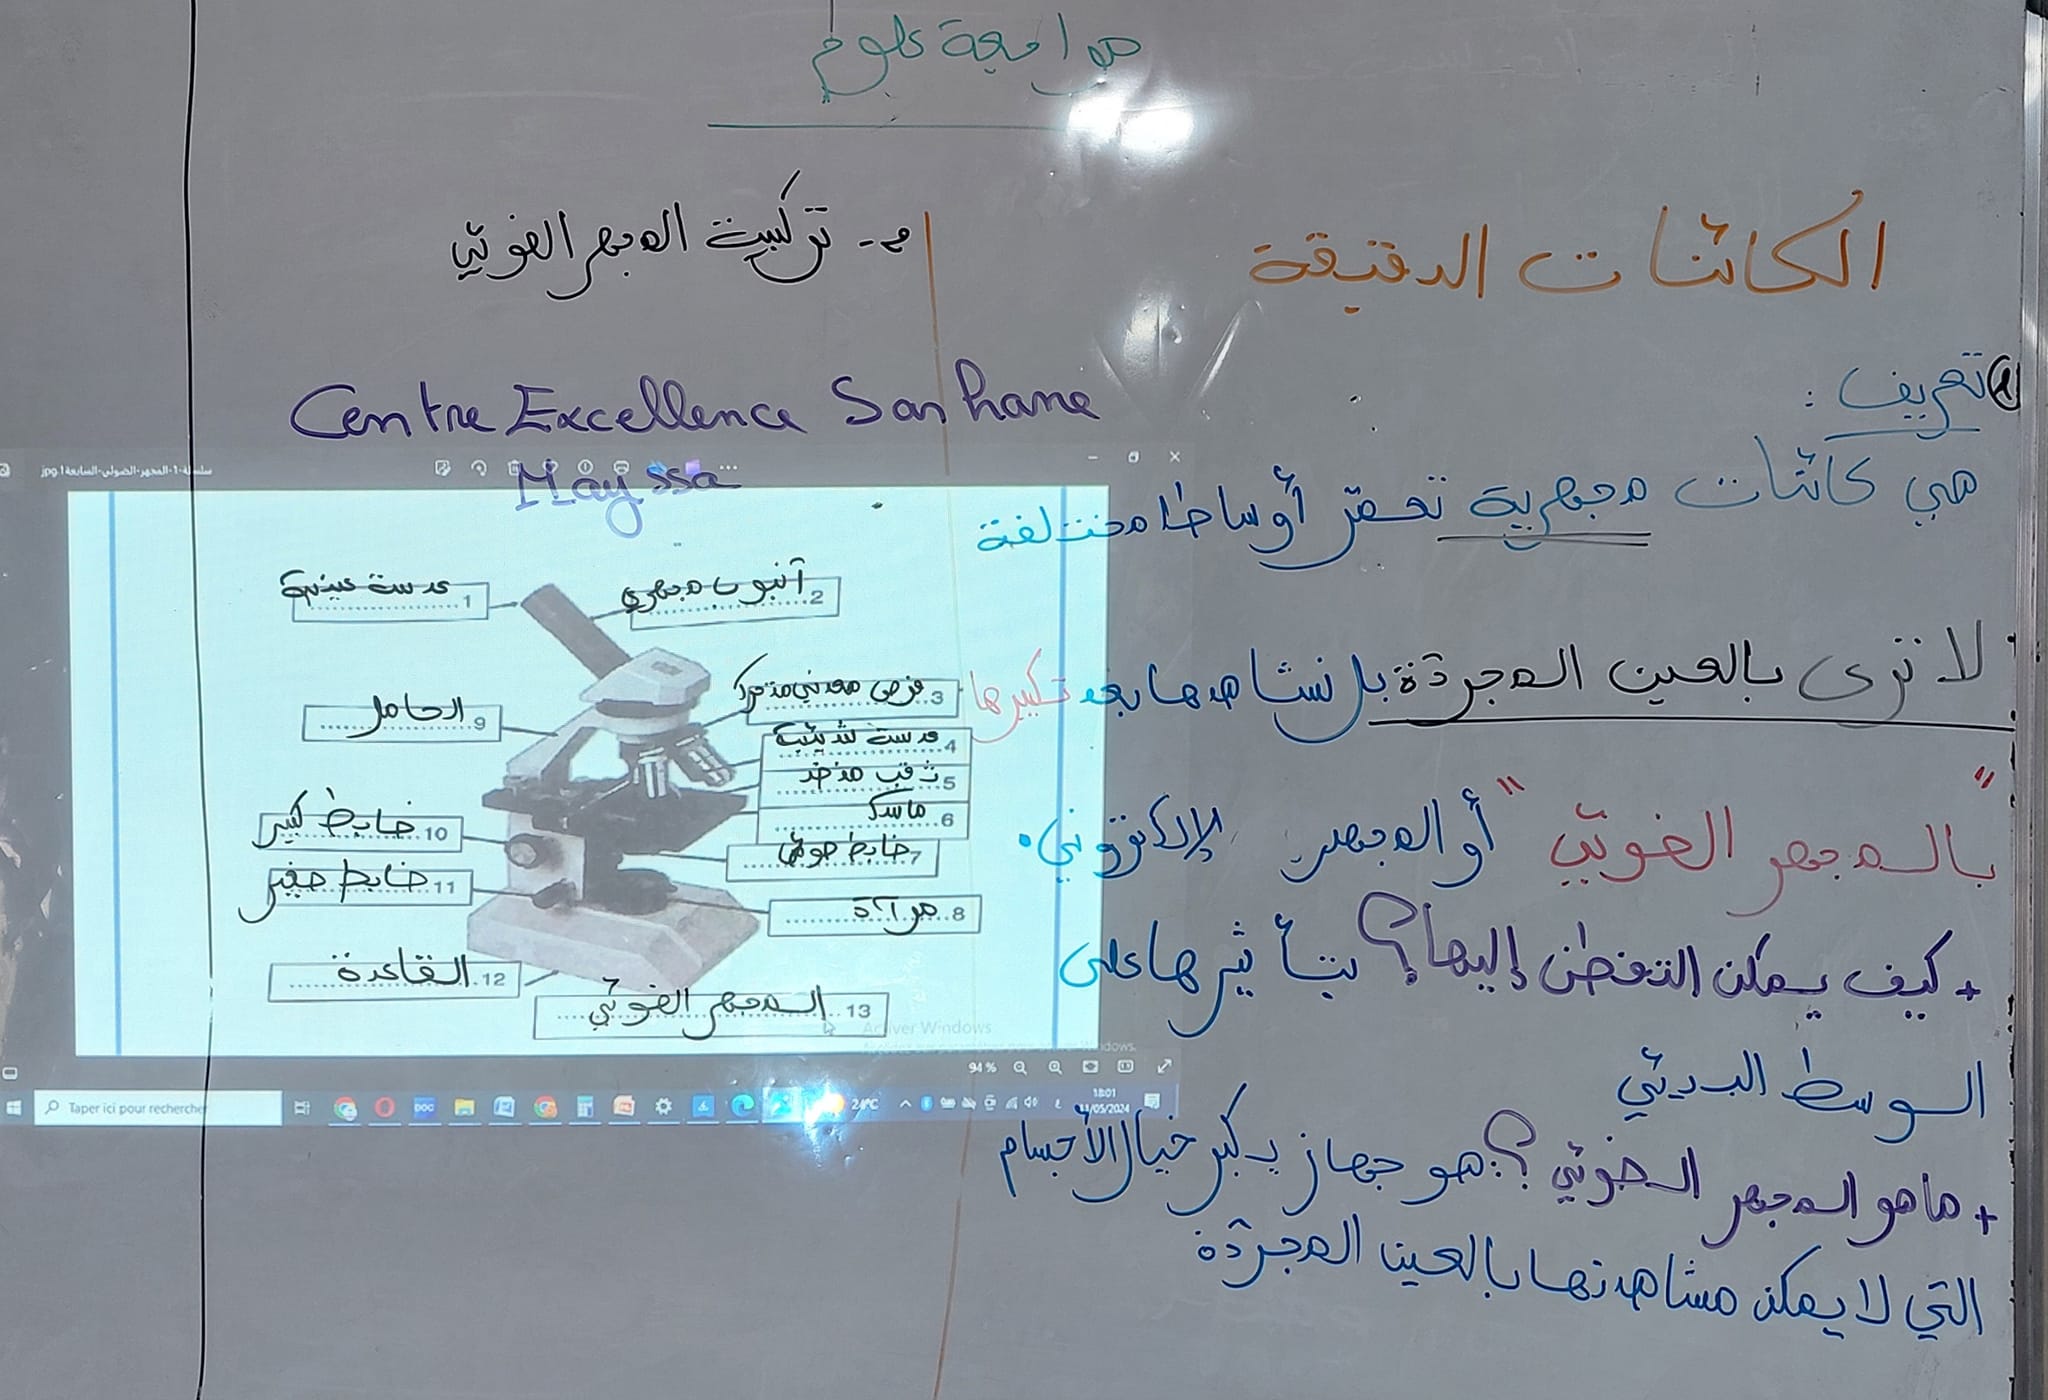 مراجعة علوم
الكائنات الدقيقة
1) تعريف :
هي كائنات مجهرية تعمّر أوساطا مختلفة
لا ترى بالعين المجردة بل نشاهدها بعد تكبيرها
"بالمجهر الضوئي" أو المجهر الإلكتروني.
+ كيف يمكن التفطن إليها؟ بتأثيرها على
الوسط البيئي
+ ما هو المجهر الضوئي؟: هو جهاز يكبر خيال الأجسام
التي لا يمكن مشاهدتها بالعين المجردة
2- تركيبة المجهر الضوئي
Centre Excellence Sanhane
Mayssa
سلسلة-1-المجهر-الضوئي-السابعة1.jpg
1 عدسة عينية
2 أنبوب مجهري
3 قرص معدني متحرك
4 عدسة شيئية
5 ثقب منضد
6 ماسك
7 ضابط ضوئي
8 مرآة
9 الحامل
10 ضابط كبير
11 ضابط صغير
12 القاعدة
13 المجهر الضوئي
Activer Windows
94 %
Taper ici pour rechercher
DOC
24°C
18:01
11/05/2024